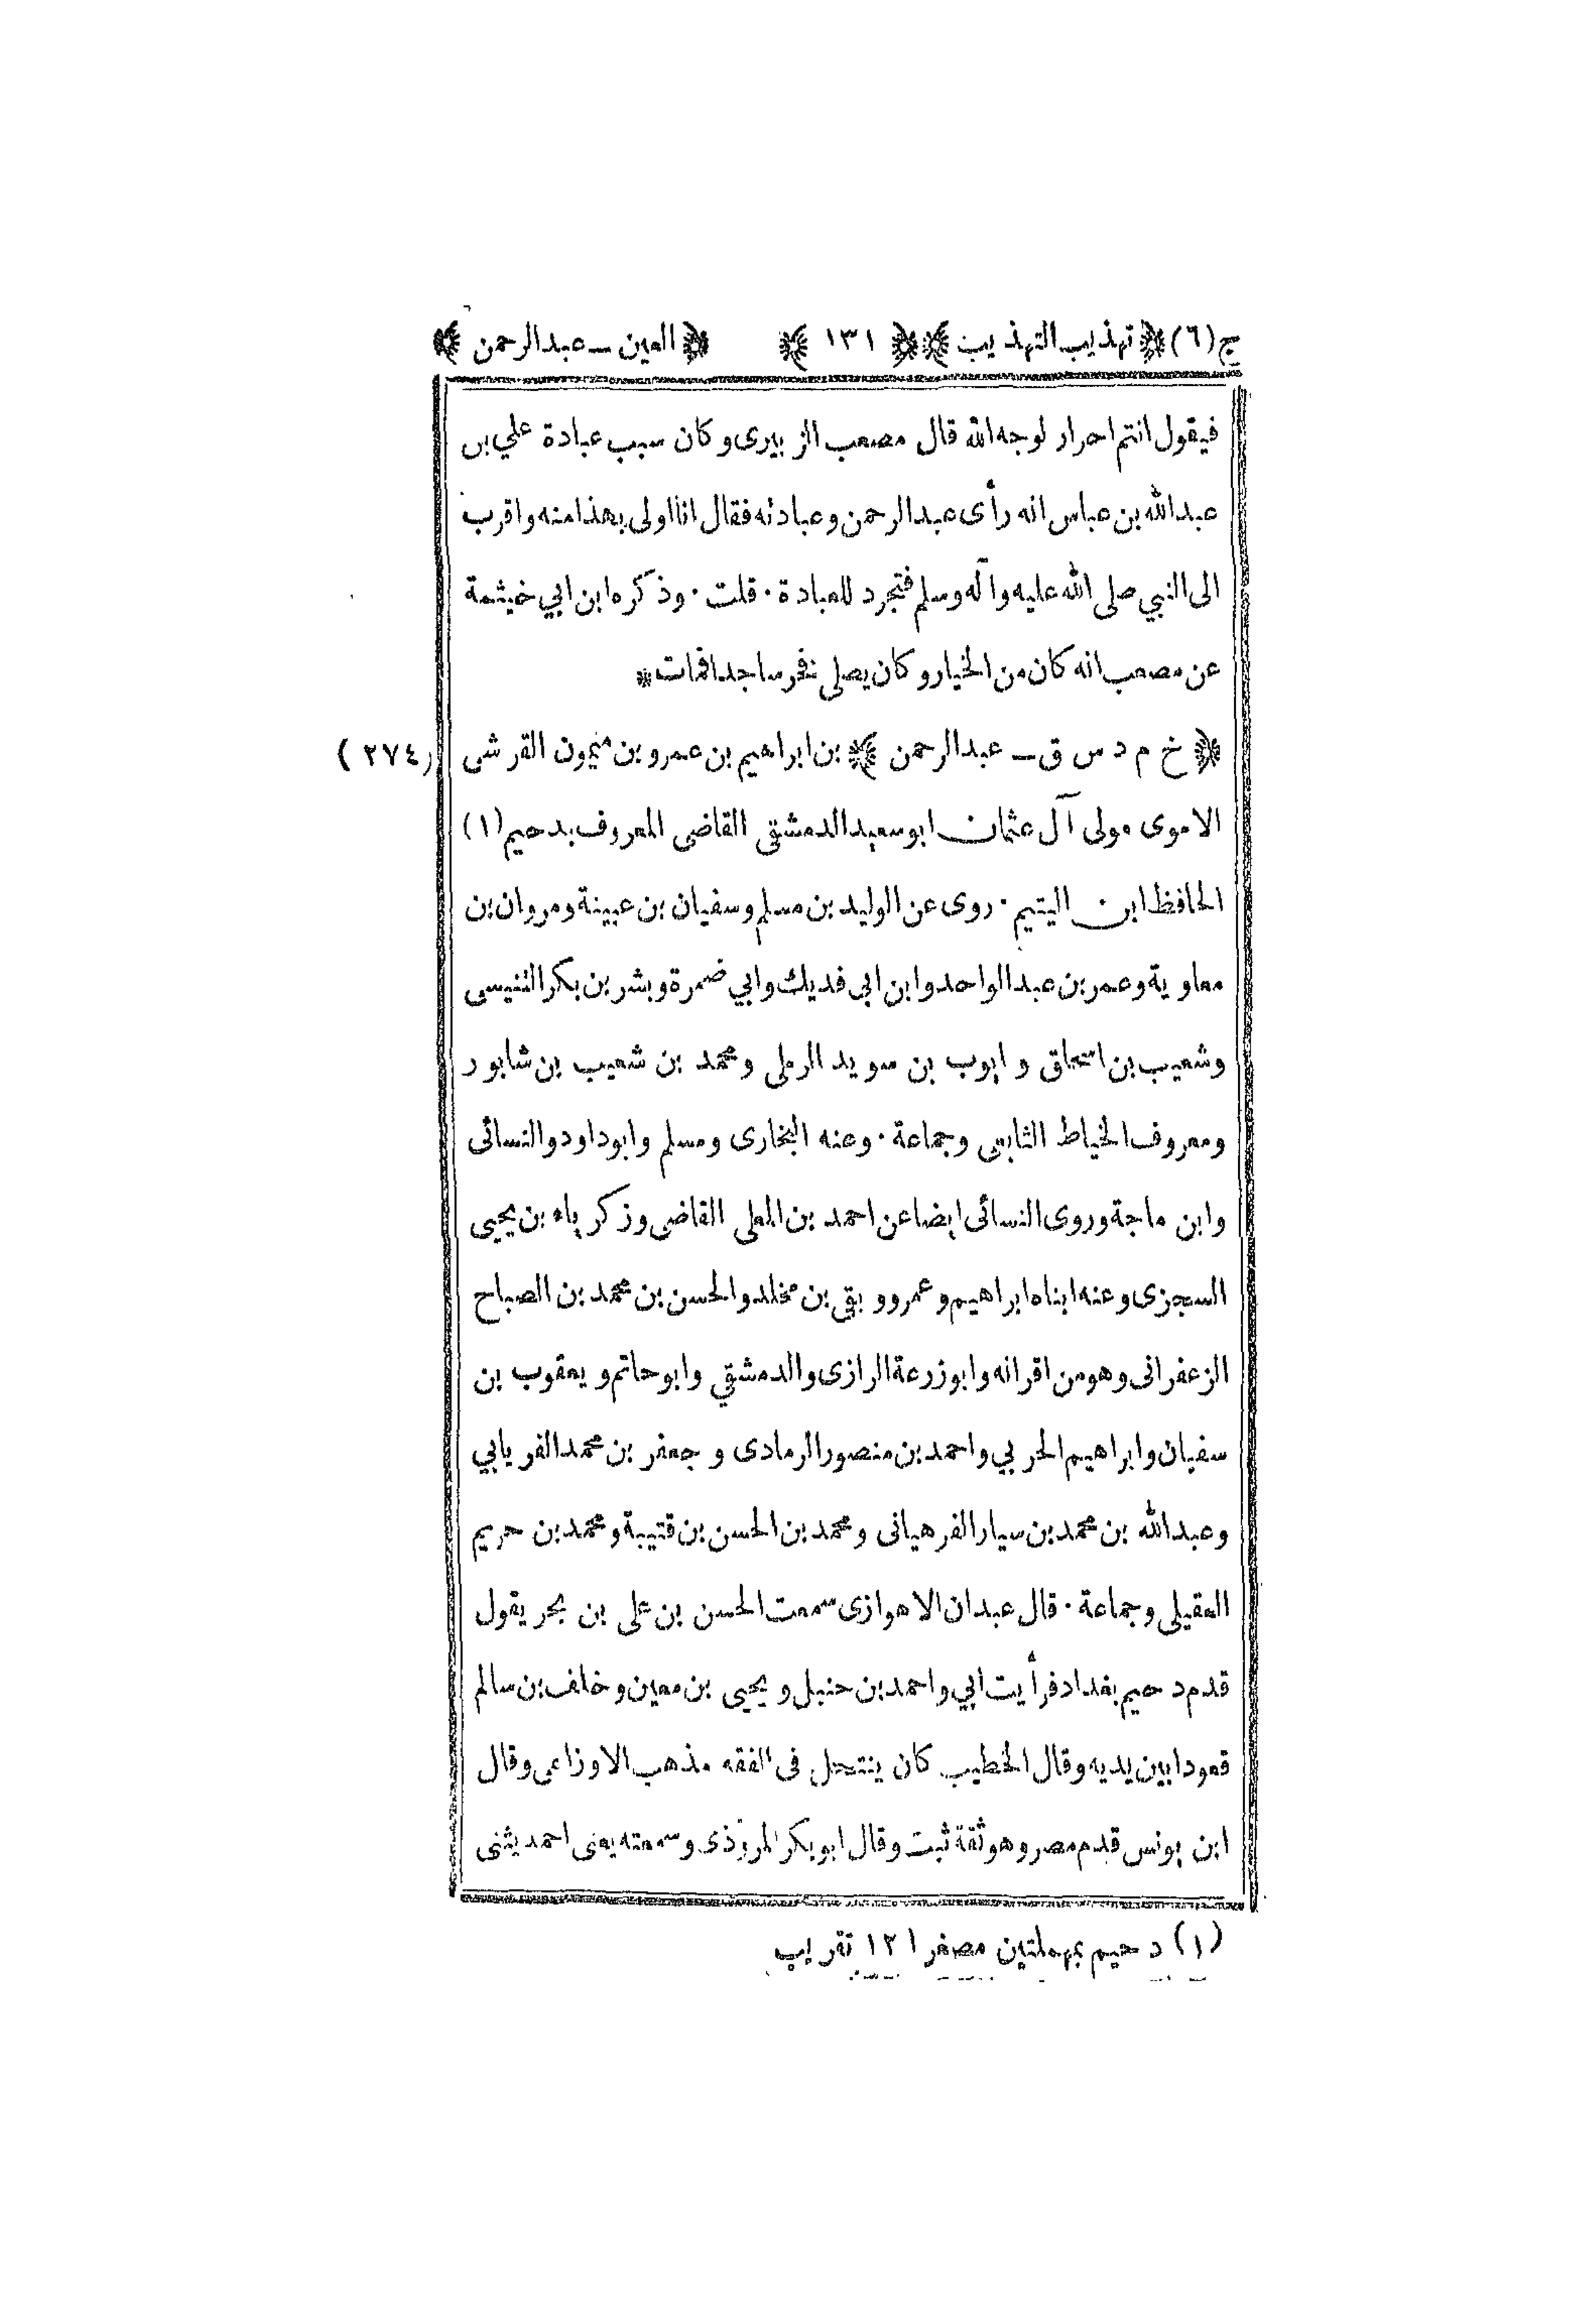 ج (٦) ﴿ تهذيب التهذيب ﴾ ﴿ ١٣١ ﴾ ﴿ العين ــ عبد الرحمن ﴾
فيقول انتم احرار لوجه الله قال مصعب الزبيرى وكان سبب عبادة علي بن
عبد الله بن عباس انه رأى عبد الرحمن وعبادته فقال انا اولى بهذا منه واقرب
الى النبي صلى الله عليه وآله وسلم فتجرد للعبادة · قلت · وذكره ابن ابي خيثمة
عن مصعب انه كان من الخيار وكان يصلي فخر ساجدا فمات *
﴿ خ م د س ق ــ عبد الرحمن ﴾ بن ابراهيم بن عمرو بن ميمون القرشى (٢٧٤)
الاموى مولى آل عثمان ابو سعيد الدمشقي القاضى المعروف بدحيم (١)
الحافظ ابن اليتيم · روى عن الوليد بن مسلم وسفيان بن عيينة ومروان بن
معاوية وعمر بن عبد الواحد وابن ابى فديك وابي ضمرة وبشر بن بكر التنيسى
وشعيب بن اسحاق و ايوب بن سويد الرملى ومحمد بن شعيب بن شابور
ومعروف الخياط الثابعى وجماعة · وعنه البخارى ومسلم وابو داود والنسائى
وابن ماجة وروى النسائى ايضا عن احمد بن المعلى القاضى وزكرياء بن يحيى
السجزى وعنه ابناه ابراهيم وعمرو و بقي بن مخلد والحسن بن محمد بن الصباح
الزعفرانى وهو من اقرانه وابو زرعة الرازى والدمشقي وابو حاتم و يعقوب بن
سفيان وابراهيم الحربي واحمد بن منصور الرمادى و جعفر بن محمد الفريابي
وعبد الله بن محمد بن سيار الفرهيانى ومحمد بن الحسن بن قتيبة ومحمد بن حريم
العقيلى وجماعة · قال عبدان الاهوازى سمعت الحسن بن على بن بحر يقول
قدم دحيم بغداد فرأيت ابي واحمد بن حنبل و يحيى بن معين وخلف بن سالم
قعودا بين يديه وقال الخطيب كان ينتحل فى الفقه مذهب الاوزاعى وقال
ابن يونس قدم مصر وهو ثقة ثبت وقال ابو بكر المروذى وسمعته يعنى احمد يثنى
(١) دحيم بمهملتين مصغرا ١٢ تقريب